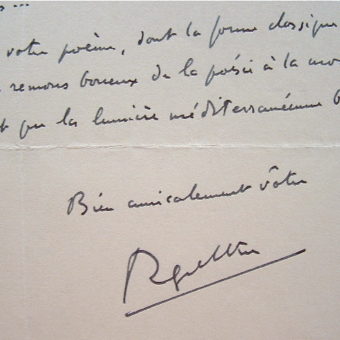 s...
votre poème, dont la forme classique
remous boueux de la poésie à la mo
que la lumière méditerranéenne
Bien amicalement vôtre